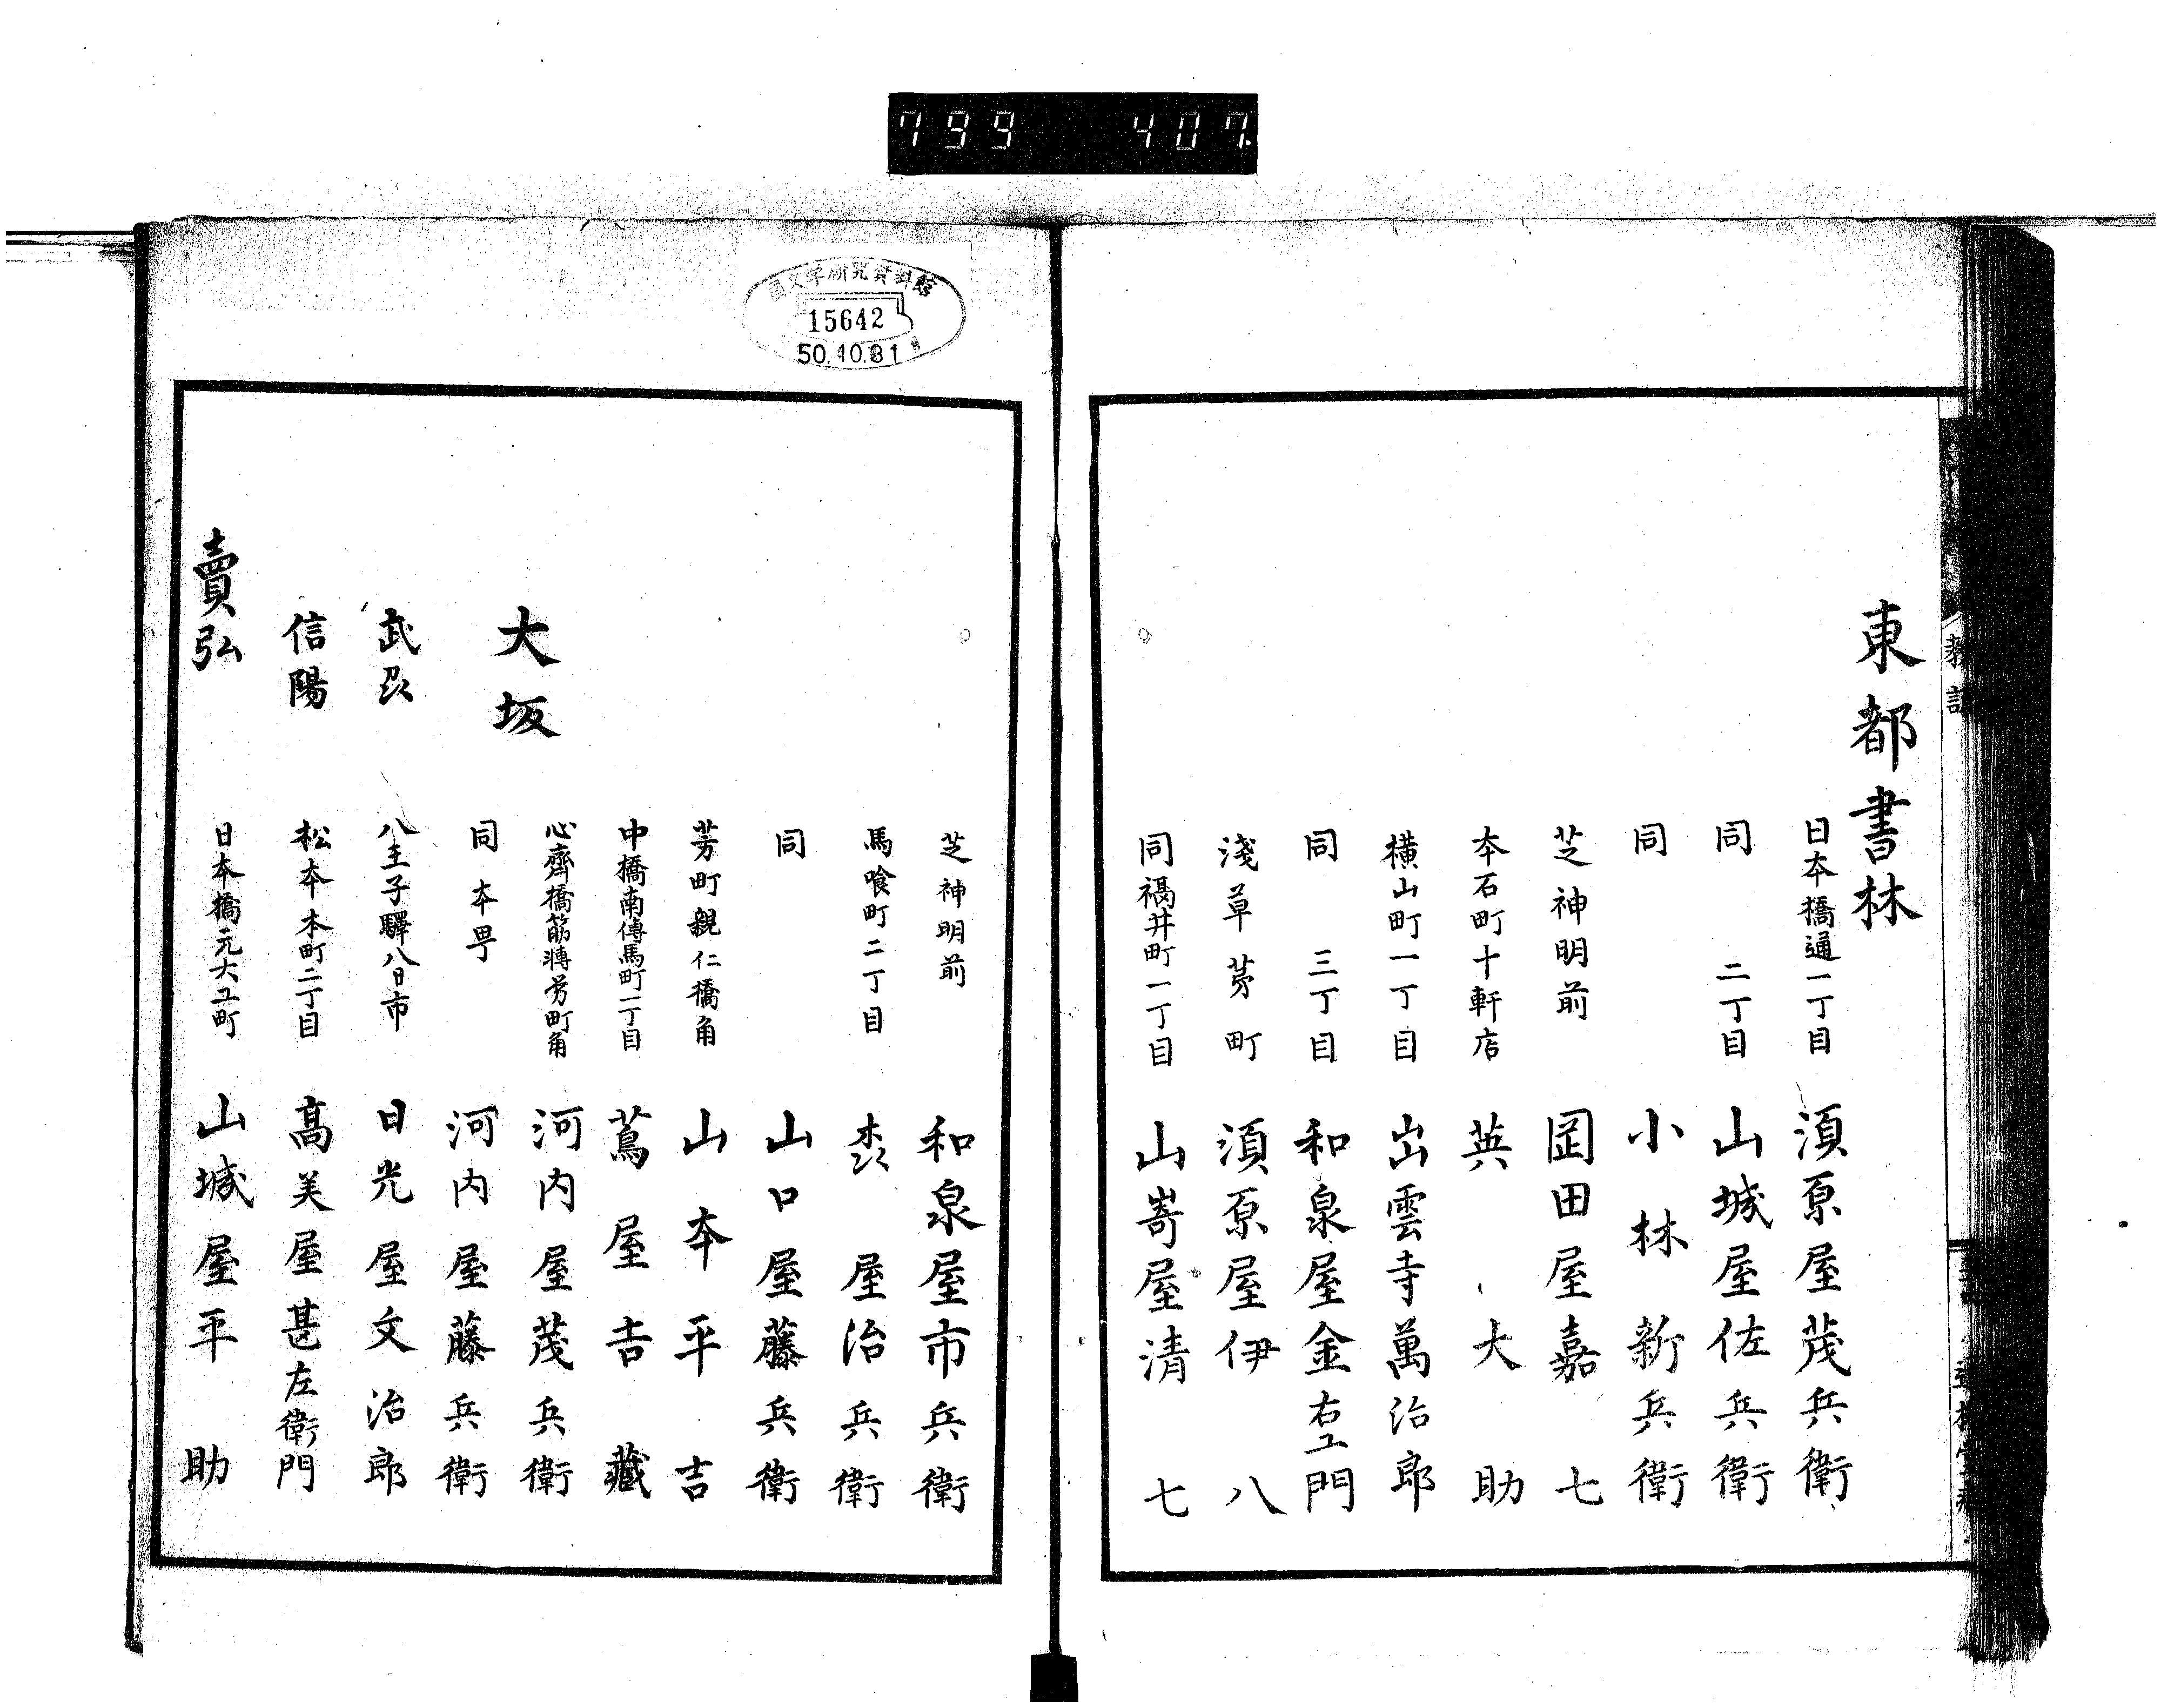 799 407.
東都書林
日本橋通一丁目 須原屋茂兵衛
同 二丁目 山城屋佐兵衛
同 小林新兵衛
芝神明前 岡田屋嘉七
本石町十軒店 英大助
横山町一丁目 出雲寺萬治郎
同 三丁目 和泉屋金右エ門
淺草茅町 須原屋伊八
同福井町一丁目 山嵜屋清七
國文学研究資料館
15642
50.10.31
芝神明前 和泉屋市兵衛
馬喰町二丁目 森屋治兵衛
同 山口屋藤兵衛
芳町親仁橋角 山本平吉
中橋南傳馬町一丁目 蔦屋吉藏
大坂
心齊橋筋博労町角 河内屋茂兵衛
同本町 河内屋藤兵衛
武州 八王子驛八日市 日光屋文治郎
信陽 松本本町二丁目 髙美屋甚左衛門
賣弘 日本橋元大工町 山城屋平助